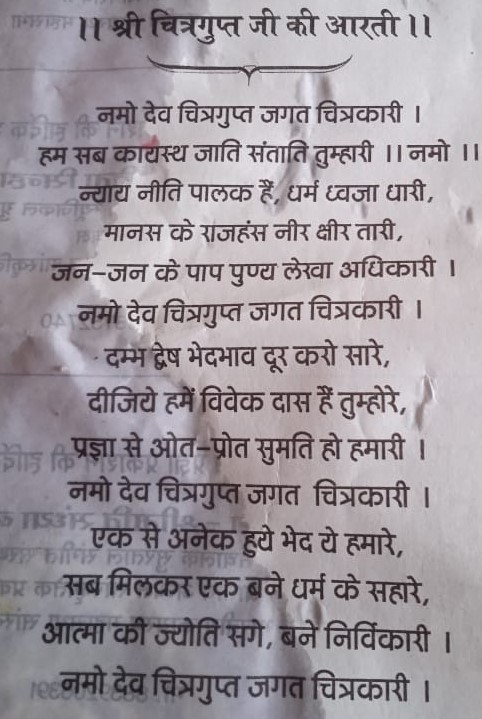 ।। श्री चित्रगुप्त जी की आरती ।।
नमो देव चित्रगुप्त जगत चित्रकारी ।
हम सब कायस्थ जाति संताति तुम्हारी ।। नमो ।।
न्याय नीति पालक हैं, धर्म ध्वजा धारी,
मानस के राजहंस नीर क्षीर तारी,
जन-जन के पाप पुण्य लेखा अधिकारी ।
नमो देव चित्रगुप्त जगत चित्रकारी ।
दम्भ द्वेष भेदभाव दूर करो सारे,
दीजिये हमें विवेक दास हैं तुम्होरे,
प्रज्ञा से ओत-प्रोत सुमति हो हमारी ।
नमो देव चित्रगुप्त जगत चित्रकारी ।
एक से अनेक हुये भेद ये हमारे,
सब मिलकर एक बने धर्म के सहारे,
आत्मा की ज्योति सगे, बने निर्विकारी ।
नमो देव चित्रगुप्त जगत चित्रकारी ।